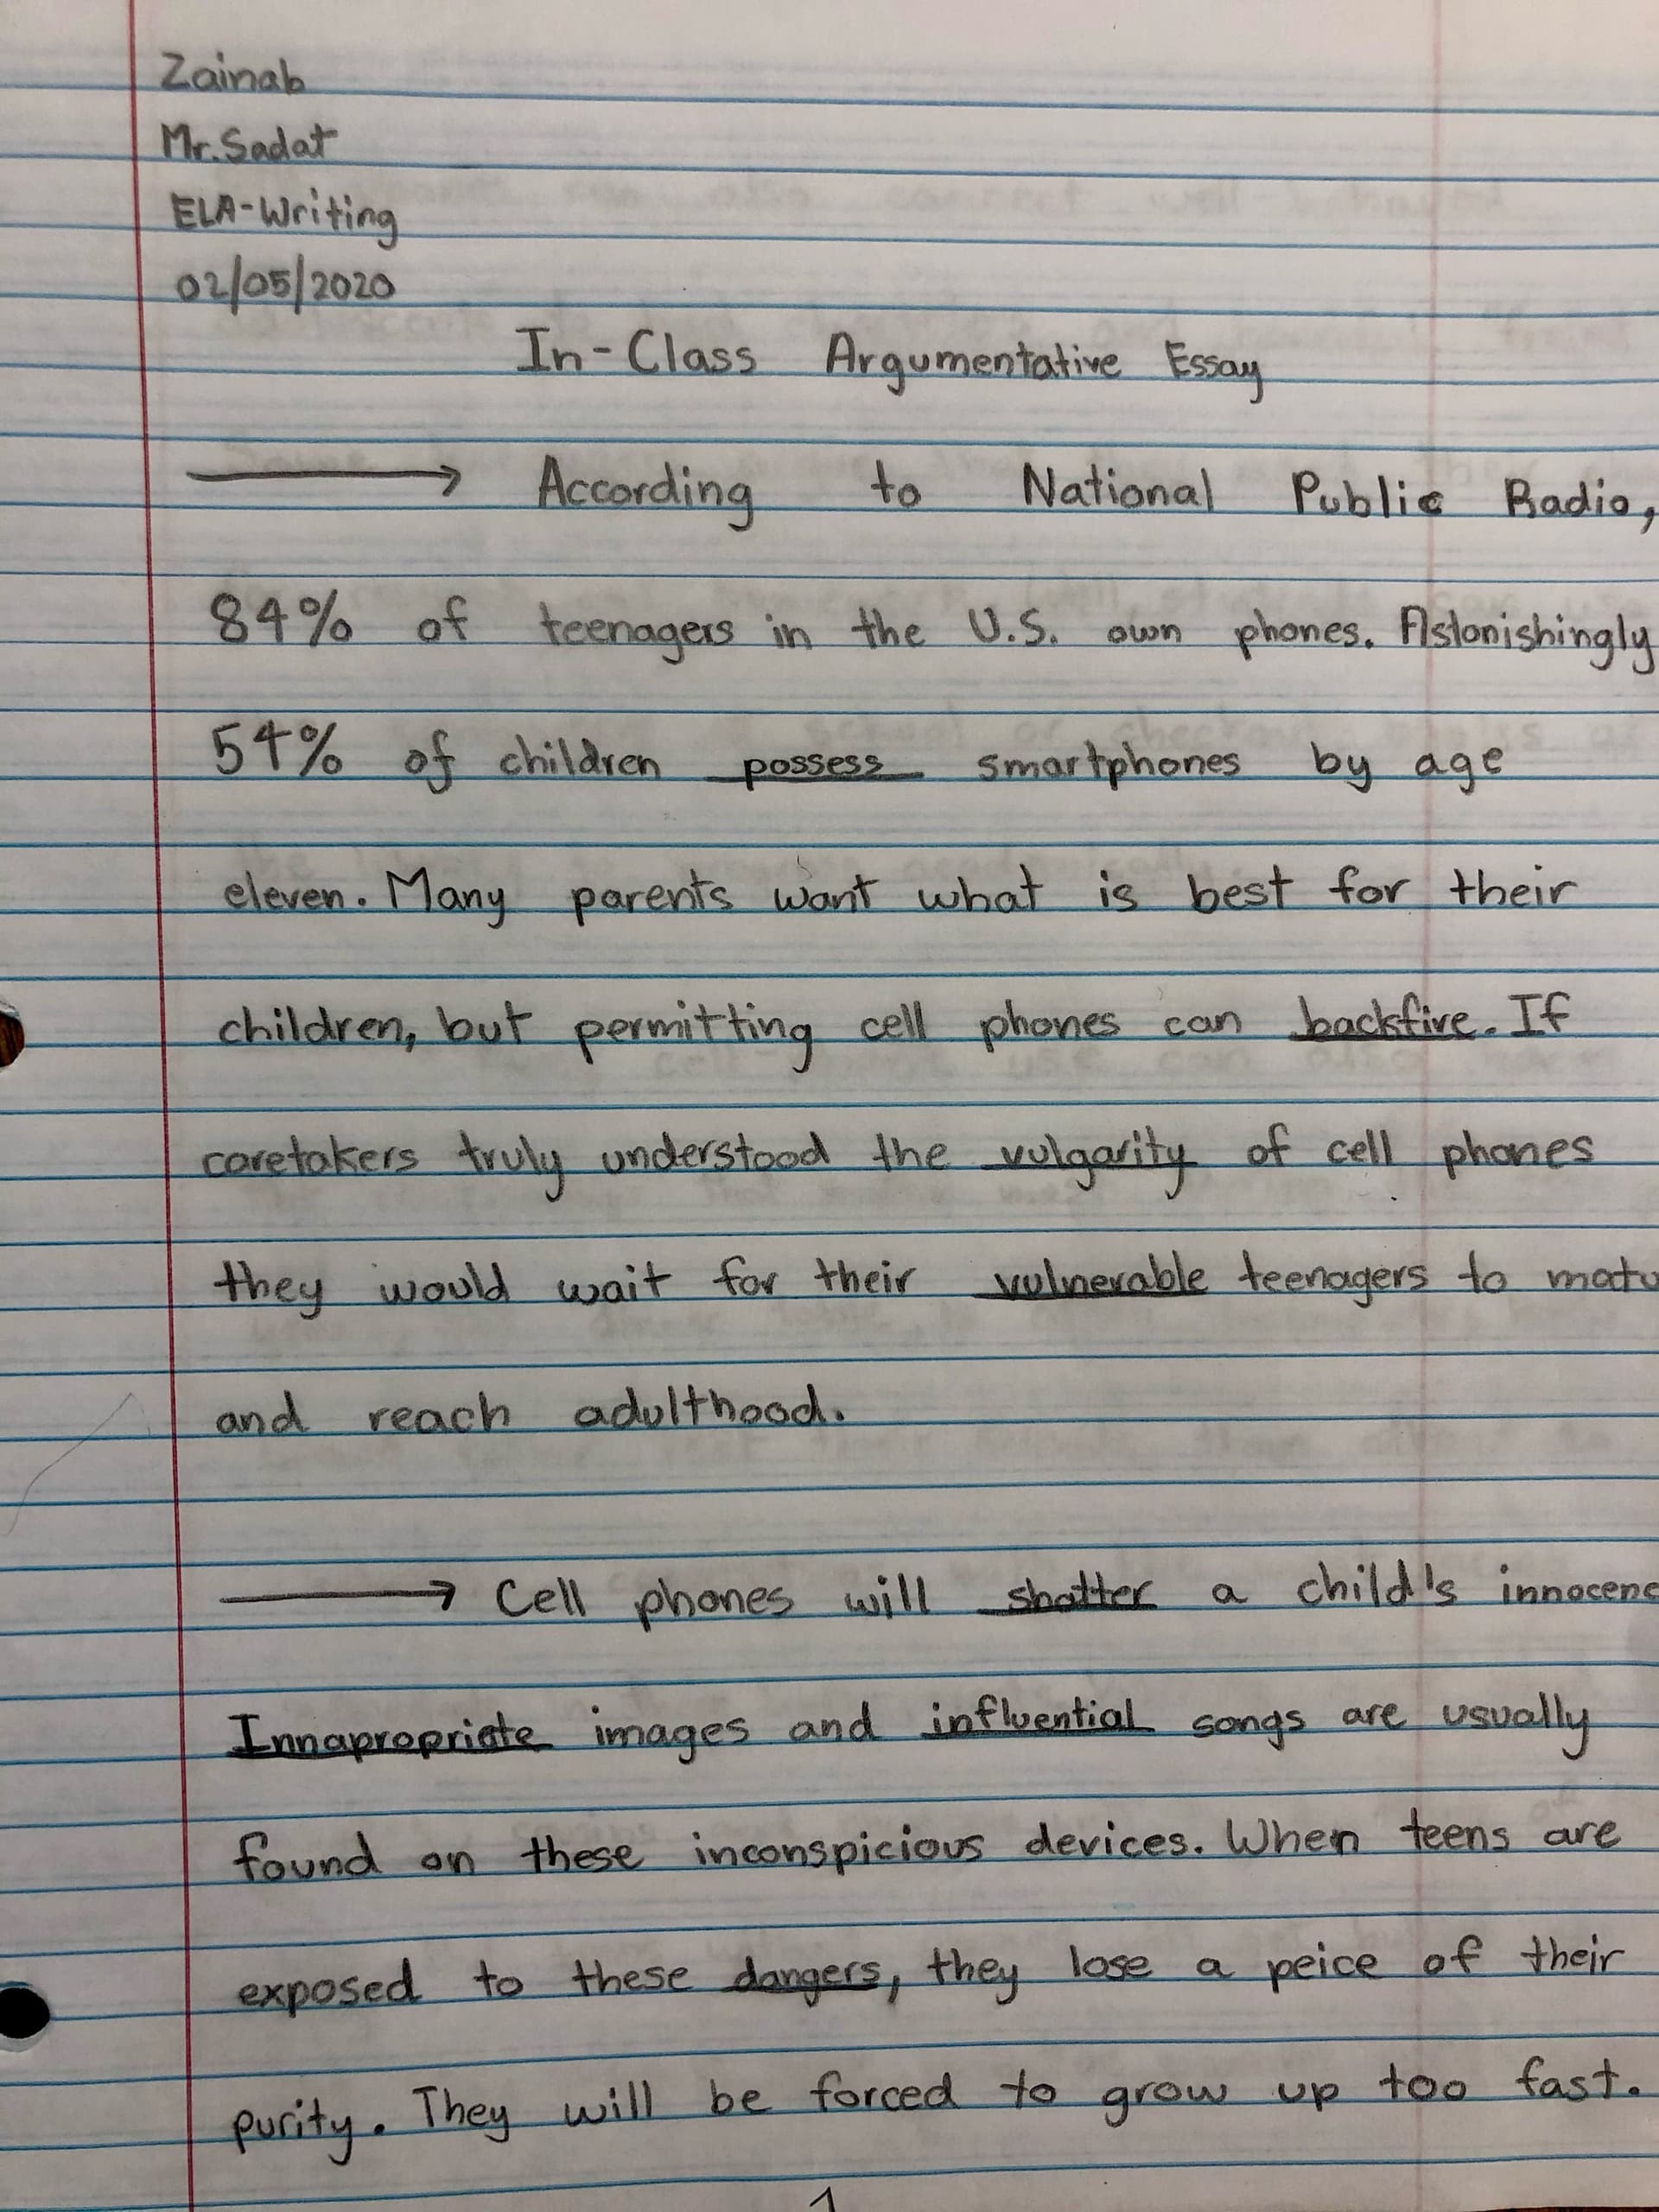 Zainab
Mr. Sadat
ELA-Writing
02/05/2020
In-Class Argumentative Essay
According to National Public Radio,
84% of teenagers in the U.S. own phones. Astonishingly
54% of children possess smartphones by age
eleven. Many parents want what is best for their
children, but permitting cell phones can backfire. If
caretakers truly understood the vulgarity of cell phones
they would wait for their vulnerable teenagers to matu
and reach adulthood.
Cell phones will shatter a child's innocenc
Innapropriate images and influential songs are usually
found on these inconspicious devices. When teens are
exposed to these dangers, they lose a peice of their
purity. They will be forced to grow up too fast.
1